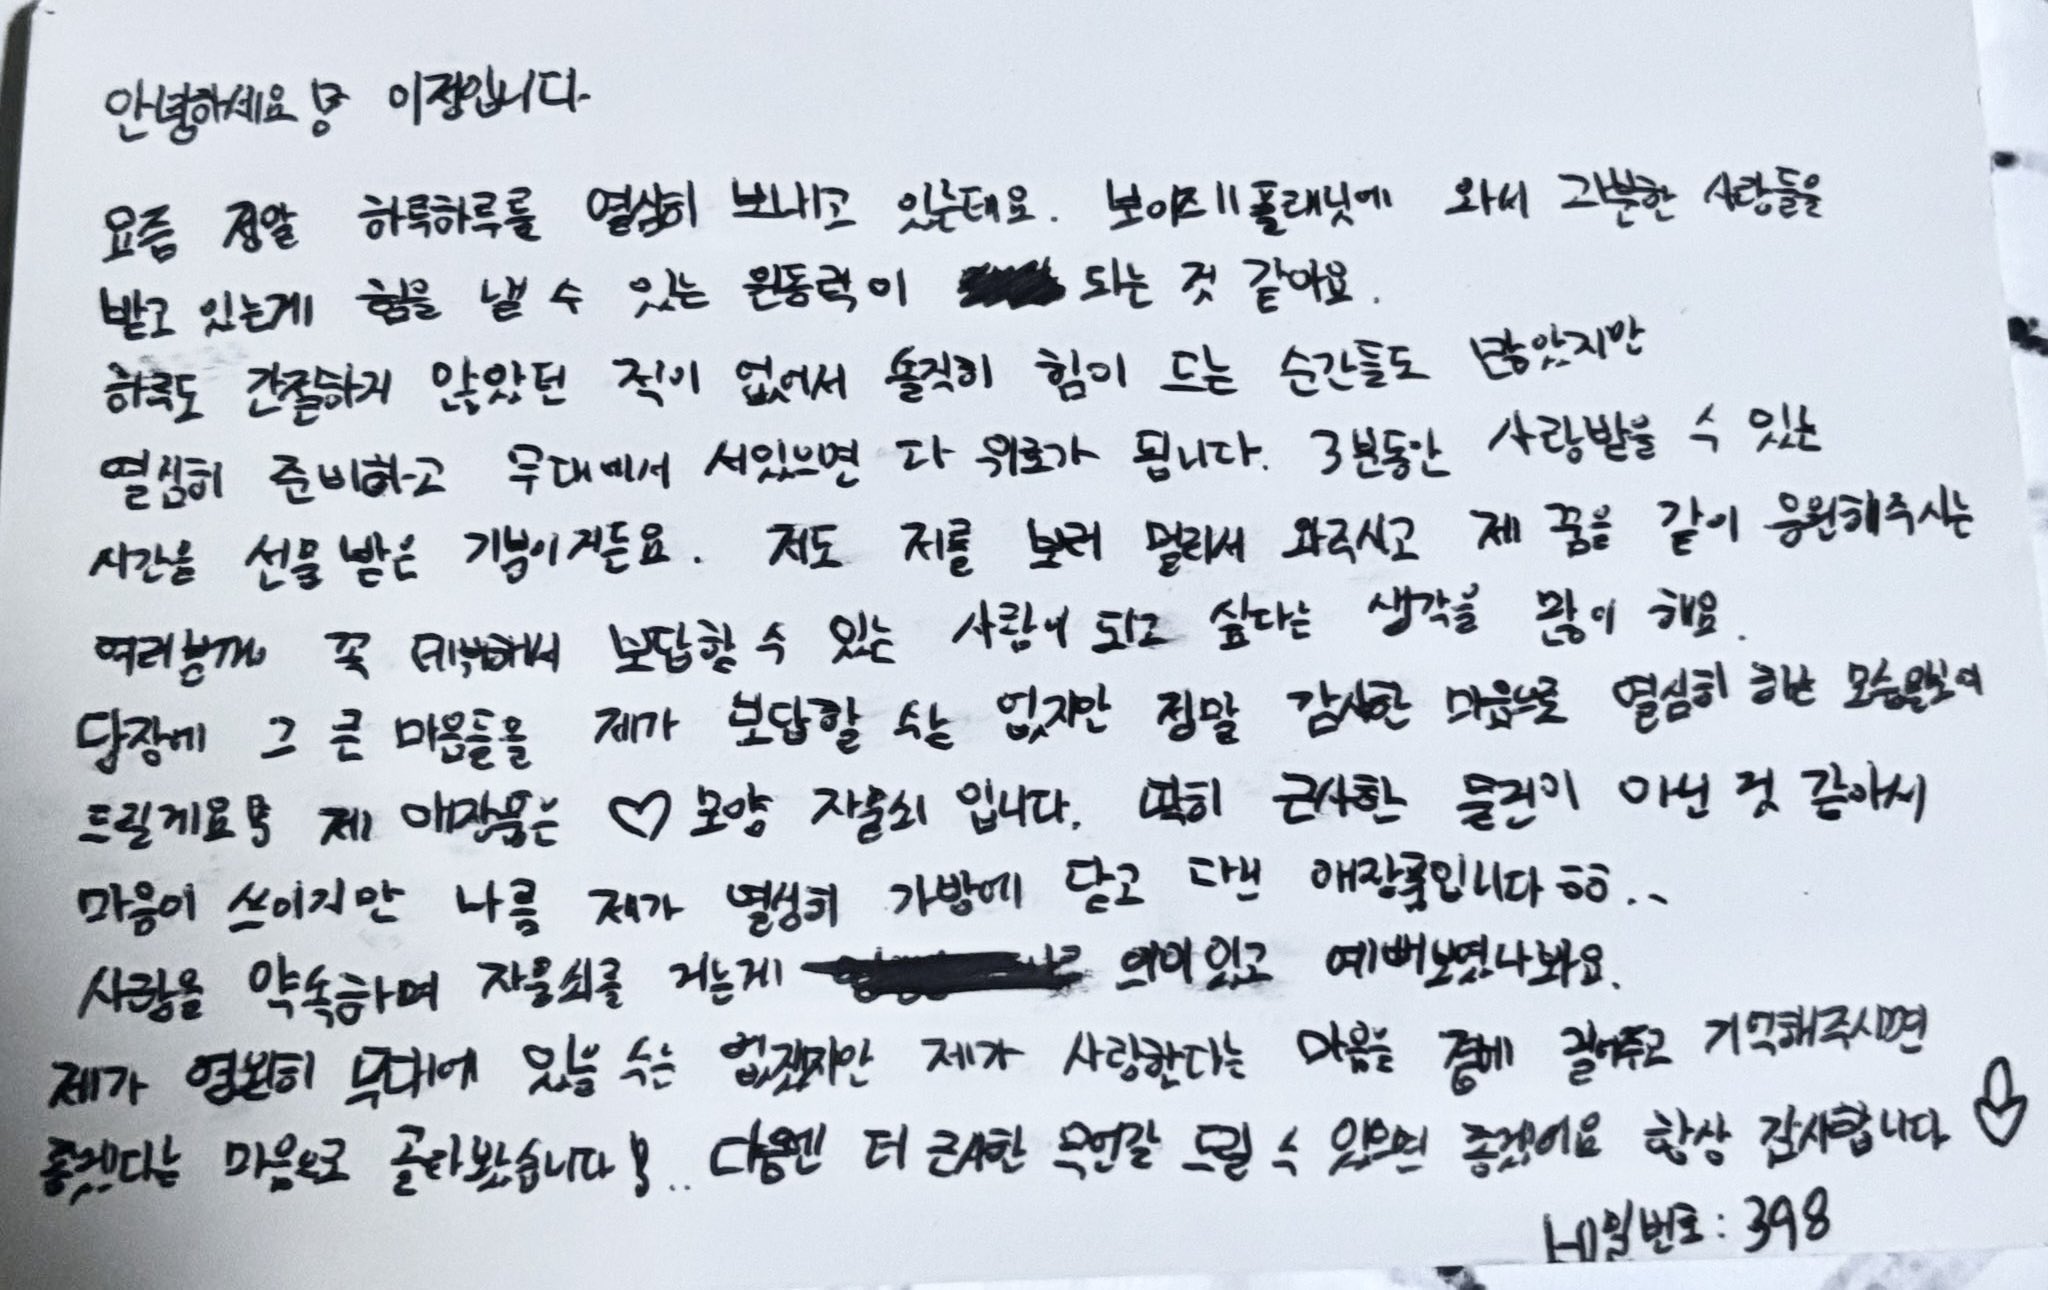 안녕하세요! 이정입니다.
요즘 정말 하루하루를 열심히 보내고 있는데요. 보이즈 II 플래닛에 와서 과분한 사랑들을
받고 있는게 힘을 낼 수 있는 원동력이 되는 것 같아요.
하루도 간절하지 않았던 적이 없어서 솔직히 힘이 드는 순간들도 많았지만
열심히 준비하고 무대에서 서있으면 다 위로가 됩니다. 3분동안 사랑받을 수 있는
시간을 선물 받은 기분이거든요. 저도 저를 보러 멀리서 와주시고 제 꿈을 같이 응원해주시는
여러분께 꼭 데뷔해서 보답할 수 있는 사람이 되고 싶다는 생각을 많이 해요.
당장에 그 큰 마음들을 제가 보답할 수는 없지만 정말 감사한 마음으로 열심히 하는 모습 보여
드릴게요! 제 애장품은 ♡ 모양 자물쇠 입니다. 딱히 근사한 물건이 아닌 것 같아서
마음이 쓰이지만 나름 제가 열심히 가방에 달고 다닌 애장품입니다 ㅎㅎ..
사랑을 약속하며 자물쇠를 거는게 의미있고 예뻐보였나봐요.
제가 영원히 무대에 있을 수는 없겠지만 제가 사랑한다는 마음을 곁에 걸어두고 기억해주시면
좋겠다는 마음으로 골라봤습니다!.. 다음엔 더 근사한 무언갈 드릴 수 있으면 좋겠어요 항상 감사합니다
비밀번호: 398